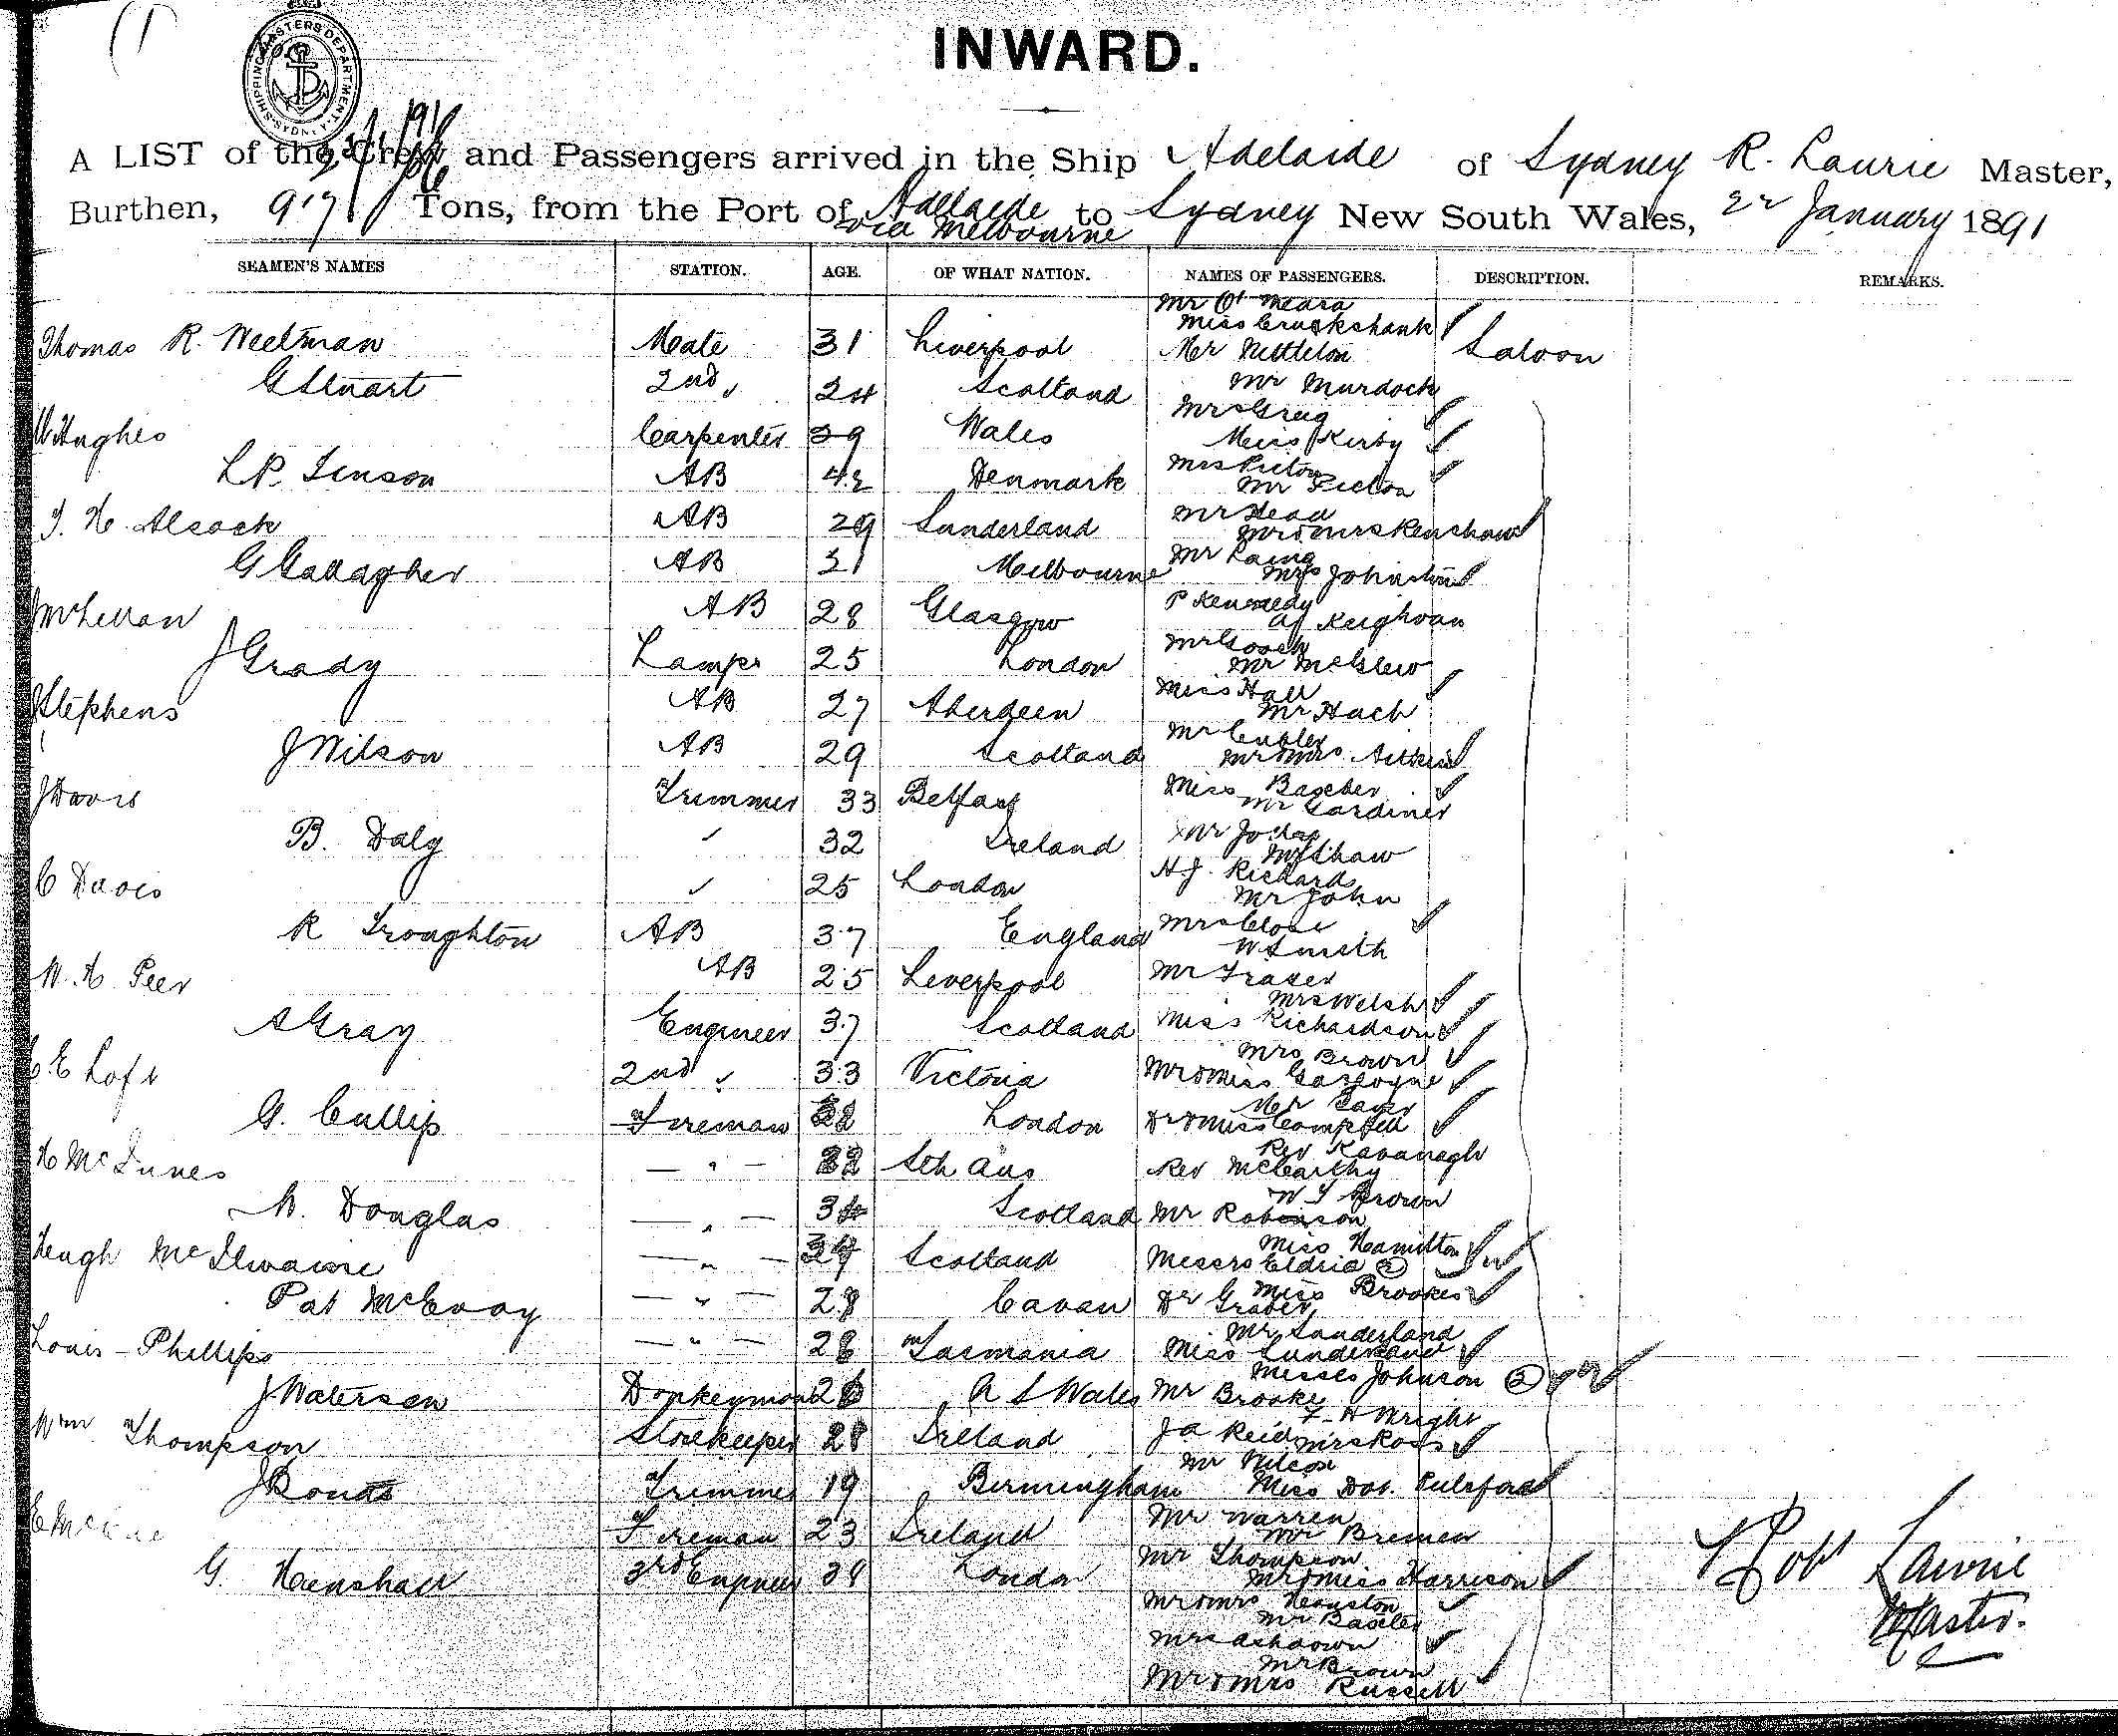 INWARD.
SHIPPING MASTERS DEPARTMENT SYDNEY
A LIST of the Crew and Passengers arrived in the Ship Adelaide of Sydney R. Laurie Master,
Burthen, Tons, from the Port of Adelaide to Sydney New South Wales, January 1891
via Melbourne
SEAMEN'S NAMES STATION. AGE. OF WHAT NATION. NAMES OF PASSENGERS. DESCRIPTION. REMARKS.
Mr O'Meara
Miss Cruckshank
Thomas R. Weetman Mate 31 Liverpool Mr Nettleton Saloon
G Stuart 2nd " 24 Scotland Mr Murdoch
Mrs Greig
W Hughes Carpenter 39 Wales Miss Kirby
Mrs Picton
L P. Jenson AB 42 Denmark Mr Picton
Mr Head
T. H. Alcock AB 29 Sunderland Mr & Mrs Renshaw
Mr Laing
G Gallagher AB 31 Melbourne Mrs Johnston
P Kennedy
J McLellan AB 28 Glasgow
Mr Gooch
J Grady Lamps 25 London
Miss Hall
J Stephens AB 27 Aberdeen Mr Hach
J Wilson AB 29 Scotland Mr & Mrs Aitken
Miss Baxcter
J Davis Trimmer 33 Belfast Mr Gardiner
B. Daly " 32 Ireland Shaw
H J. Richards
C Davis " 25 London Mr John
Mrs Close
R Troughton AB 37 England W Smith
W. H. Peer AB 25 Liverpool Mr Fraser
Mrs Welsh
A Gray Engineer 37 Scotland Miss Richardson
Mrs Brown
C E Loft 2nd " 33 Victoria Mr & Miss Gascoyne
G. Cullip Fireman London Dr & Miss Campbell
Rev Kavanagh
H McInnes — " — Sth Aus Rev McCarthy
W J Brown
N. Douglas — " — Scotland Mr Robinson
Miss Hamilton
Hugh McIlwaine — " — Scotland Messrs Eldrid 2
Miss Brookes
Pat McEvoy — " — 28 Cavan Dr G Graber
Mr Sunderland
Louis Phillips — " — 28 Tasmania Miss Sunderland
Misses Johnson 2
J Waterson Donkeyman N S Wales Mr Brooke
F. H Wright
Wm Thompson Storekeeper 28 Ireland J A Reid Mrs Ross
Mr Wilcox
J Bonds Trimmer 19 Birmingham Miss Dav. Pulsford
Mr Warren
Fireman 23 Ireland Mr Bremen
Mr Thompson
G. Henshall 3rd Engineer London Mr & Miss Harrison
Mr & Mrs Heauston
Mr Baxcter
Mrs Ashdown
Mr Brown
Mr & Mrs Russell
Robt Laurie
Master.